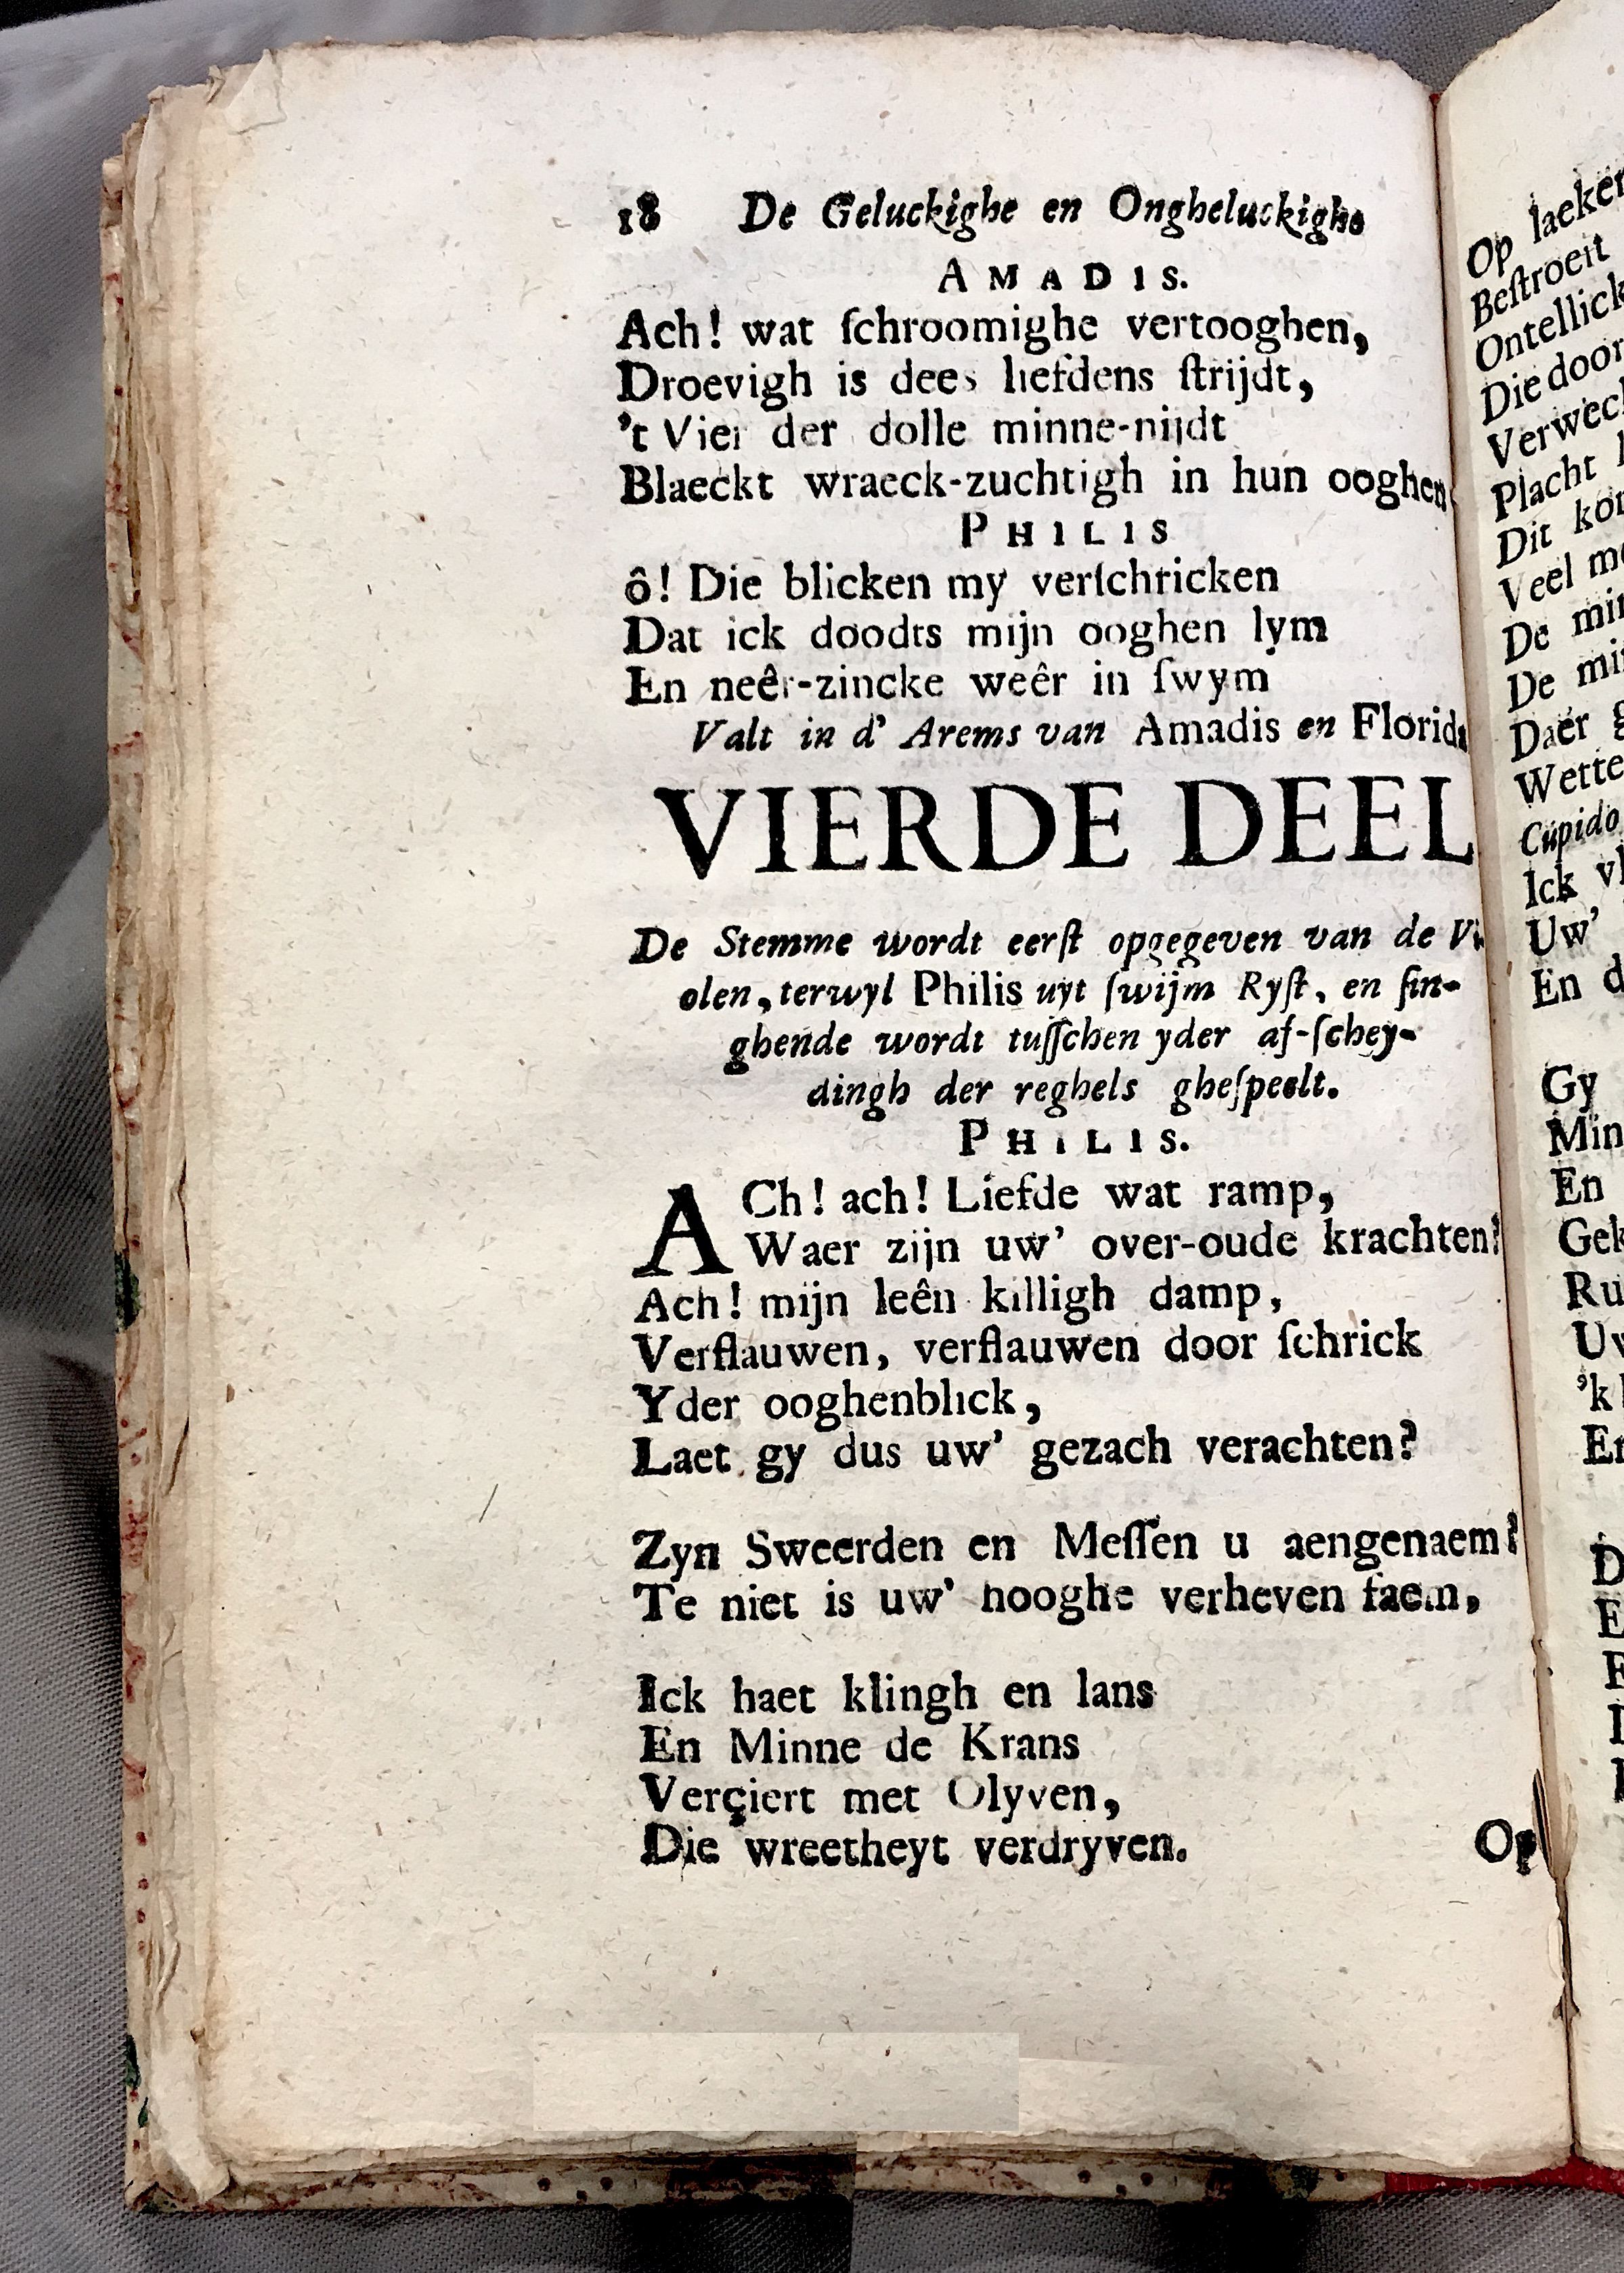 18 De Geluckighe en Ongheluckighe
AMADIS.
Ach! wat ſchroomighe vertooghen,
Droevigh is dees liefdens ſtrijdt,
't Vier der dolle minne-nijdt
Blaeckt wraeck-zuchtigh in hun ooghen
PHILIS
ô! Die blicken my verſchricken
Dat ick doodts mijn ooghen lym
En neêr-zincke weêr in ſwym
Valt in d' Arems van Amadis en Florida
VIERDE DEEL
De Stemme wordt eerſt opgegeven van de Vi
olen, terwyl Philis uyt ſwijm Ryſt, en ſin-
ghende wordt tuſſchen yder af-ſchey-
dingh der reghels gheſpeelt.
PHILIS.
ACh! ach! Liefde wat ramp,
Waer zijn uw' over-oude krachten?
Ach! mijn leên killigh damp,
Verflauwen, verflauwen door ſchrick
Yder ooghenblick,
Laet gy dus uw' gezach verachten?
Zyn Sweerden en Meſſen u aengenaem?
Te niet is uw' hooghe verheven faem,
Ick haet klingh en lans
En Minne de Krans
Verçiert met Olyven,
Die wreetheyt verdryven.
Op
Op laeken
Beſtroeit
Ontellick
Die door
Verweck
Placht
Dit kon
Veel
De min
De min
Daer g
Wette
Cupido
Ick vl
Uw'
En d
Gy
Min
En
Gek
Ru
Uw
'k
En